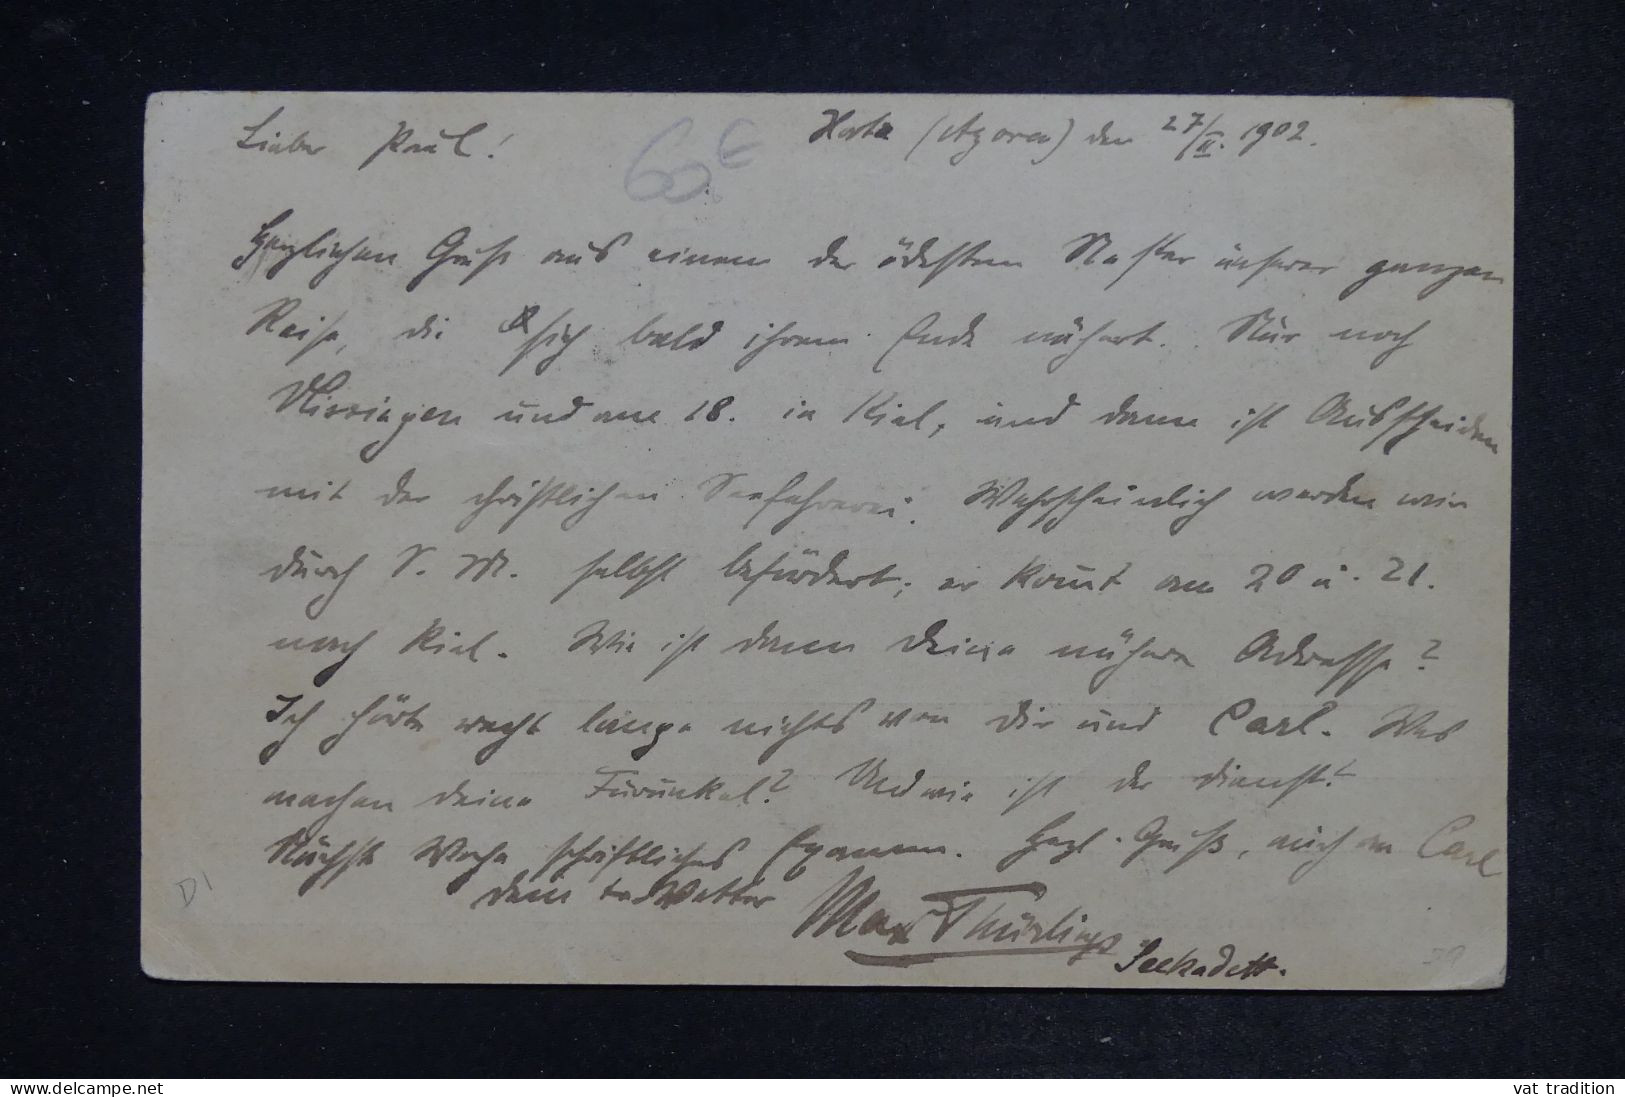 Lieber Paul! Horta (Azoren) den 27/II. 1902.
60 €
Herzlichen Gruß aus einem der ödesten Nester unserer ganzen
Reise, die sich bald ihrem Ende nähert. Nur noch
Vlissingen und am 18. in Kiel, und dann ist Ausscheiden
mit der christlichen Seefahrerei. Wahrscheinlich werden wir
durch S. M. selbst befördert; er kommt am 20 u. 21.
nach Kiel. Wie ist denn Deine nähere Adresse?
Ich hörte recht lange nichts von Dir und Carl. Was
machen deine Furunkel? Und wie ist der Dienst?
Nächste Woche schriftliches Examen. Herzl. Gruß, auch an Carl
Dein Vetter
Max Thürlings
Seekadett.
D1
www.delcampe.net
vat tradition